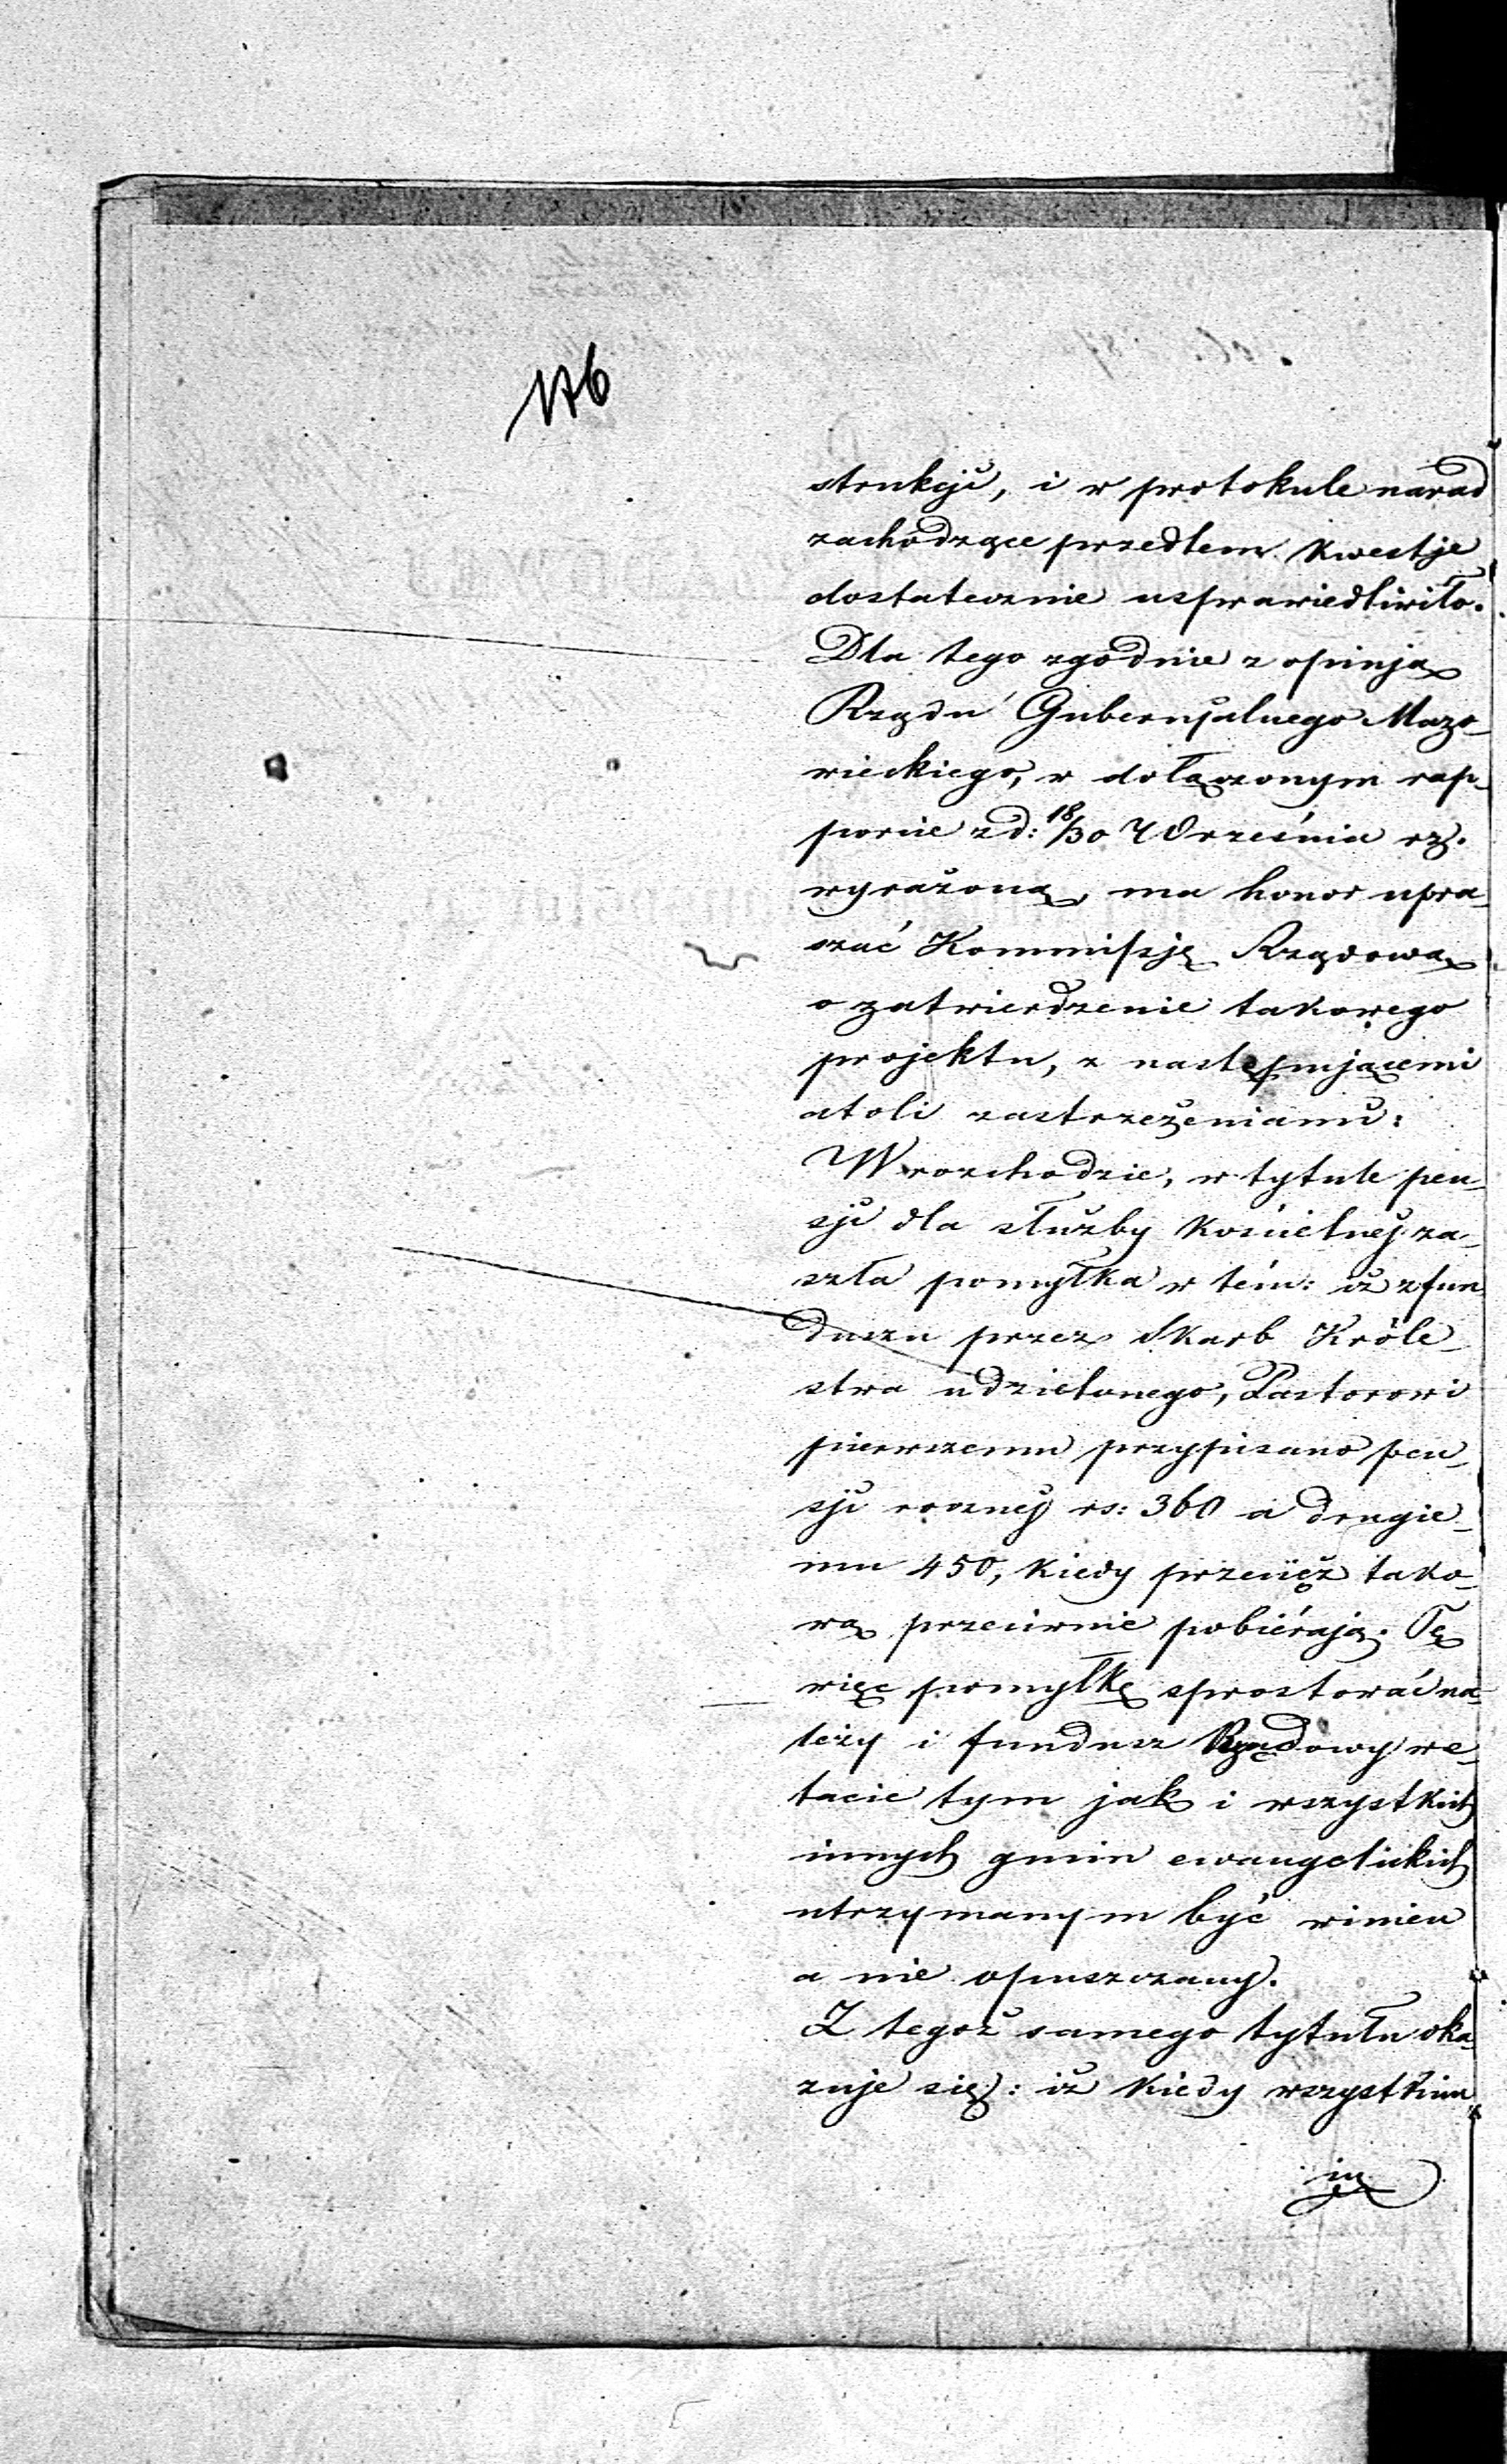 176
strukcji, i w protokule narad
zachodzące przedtem kwestje
dostatecznie usprawiedliwiło.
Dla tego zgodnie z opinją
Rządu Gubernjalnego Mazo-
wieckiego, w dołączonym rap-
porcie z d: 18/30 Września rz.
wyrażoną, ma honor upra-
szać Kommissję Rządową
o zatwierdzenie takowego
projektu, z następującemi
atoli zastrzeżeniami:
W rozchodzie, w tytule pen-
sji dla służby kościelnej za-
szła pomyłka w tém: iż z fun
duszu przez Skarb Króle-
stwa udzielonego, Pastorowi
pierwszemu przypisano pen-
sji rocznej rs: 360 a drugie-
mu 450, kiedy przeciéż tako-
wą przeciwnie pobiérają. Tę
więc pomyłkę sprostować na-
leży i fundusz Rządowy w e-
tacie tym jak i wszystkich
innych gmin ewangelickich
utrzymanym być winien
a nie opuszczany.
Z tegoż samego tytułu oka-
zuje się: iż kiedy wszystkim
in